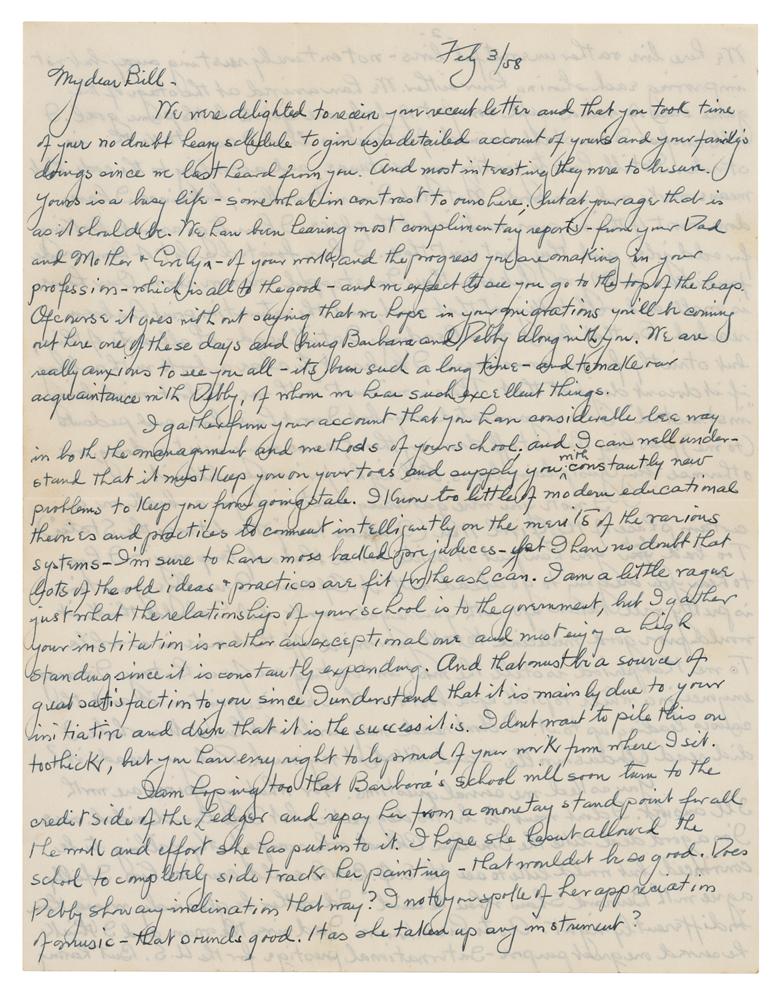 Feby 3/58
My dear Bill -
We were delighted to receive your recent letter and that you took time
of your no doubt heavy schedule to give us a detailed account of yours and your family's
doings since we last heard from you. And most interesting they were to be sure.
Yours is a busy life - somewhat in contrast to ours here, but at your age that is
as it should be. We have been hearing most complimentary reports - from your Dad
and Mother + Evelyn - of your work, and the progress you are making in your
profession - which is all to the good - and we expect to see you go to the top of the heap.
Of course it goes without saying that we hope in your migrations you'll be coming
out here one of these days and bring Barbara and Debby along with you. We are
really anxious to see you all - it's been such a long time - and to make our
acquaintance with Debby, of whom we hear such excellent things.
I gather from your account that you have considerable lee way
in both the management and methods of your school, and I can well under-
stand that it must keep you on your toes and supply you with constantly new
problems to keep you from going stale. I know too little of modern educational
theories and practices to comment intelligently on the merits of the various
systems - I'm sure to have moss backed prejudices - yet I have no doubt that
lots of the old ideas + practices are fit for the ash can. I am a little vague
just what the relationship of your school is to the government, but I gather
your institution is rather an exceptional one and must enjoy a high
standing since it is constantly expanding. And that must be a source of
great satisfaction to you since I understand that it is mainly due to your
initiative and drive that it is the success it is. I dont want to pile this on
too thick, but you have every right to be proud of your work from where I sit.
I am hoping too that Barbara's school will soon turn to the
credit side of the Ledger and repay her from a monetary stand point for all
the work and effort she has put into it. I hope she hasnt allowed the
school to completely side track her painting - that wouldnt be so good. Does
Debby show any inclination that way? I note you spoke of her appreciation
of music - that sounds good. Has she taken up any instrument?